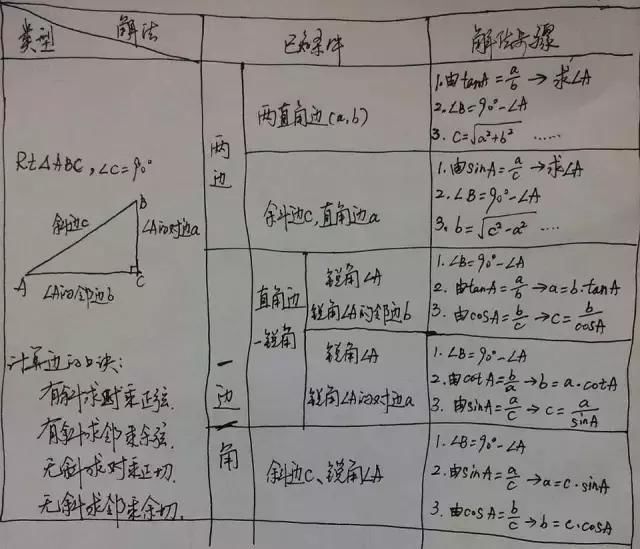 解法
类型
已知条件
解法步骤
Rt△ABC,∠C=90°
B
斜边c
∠A的对边a
A
C
∠A的邻边b
计算边的口诀:
有斜求对乘正弦.
有斜求邻乘余弦.
无斜求对乘正切.
无斜求邻乘余切.
两边
两直角边(a,b)
1.由tanA=a/b→求∠A
2.∠B=90°-∠A
3. c=√a²+b² ……
斜边c,直角边a
1.由sinA=a/c→求∠A
2.∠B=90°-∠A
3. b=√c²-a² ……
一边一角
直角边
一锐角
锐角∠A
锐角∠A的邻边b
1. ∠B=90°-∠A
2. 由tanA=a/b→a=b·tanA
3. 由cosA=b/c→c=b/cosA
锐角∠A
锐角∠A的对边a
1. ∠B=90°-∠A
2.由cotA=b/a→b=a·cotA
3. 由sinA=a/c→c=a/sinA
斜边c、锐角∠A
1. ∠B=90°-∠A
2.由sinA=a/c→a=c·sinA
3. 由cosA=b/c→b=c·cosA